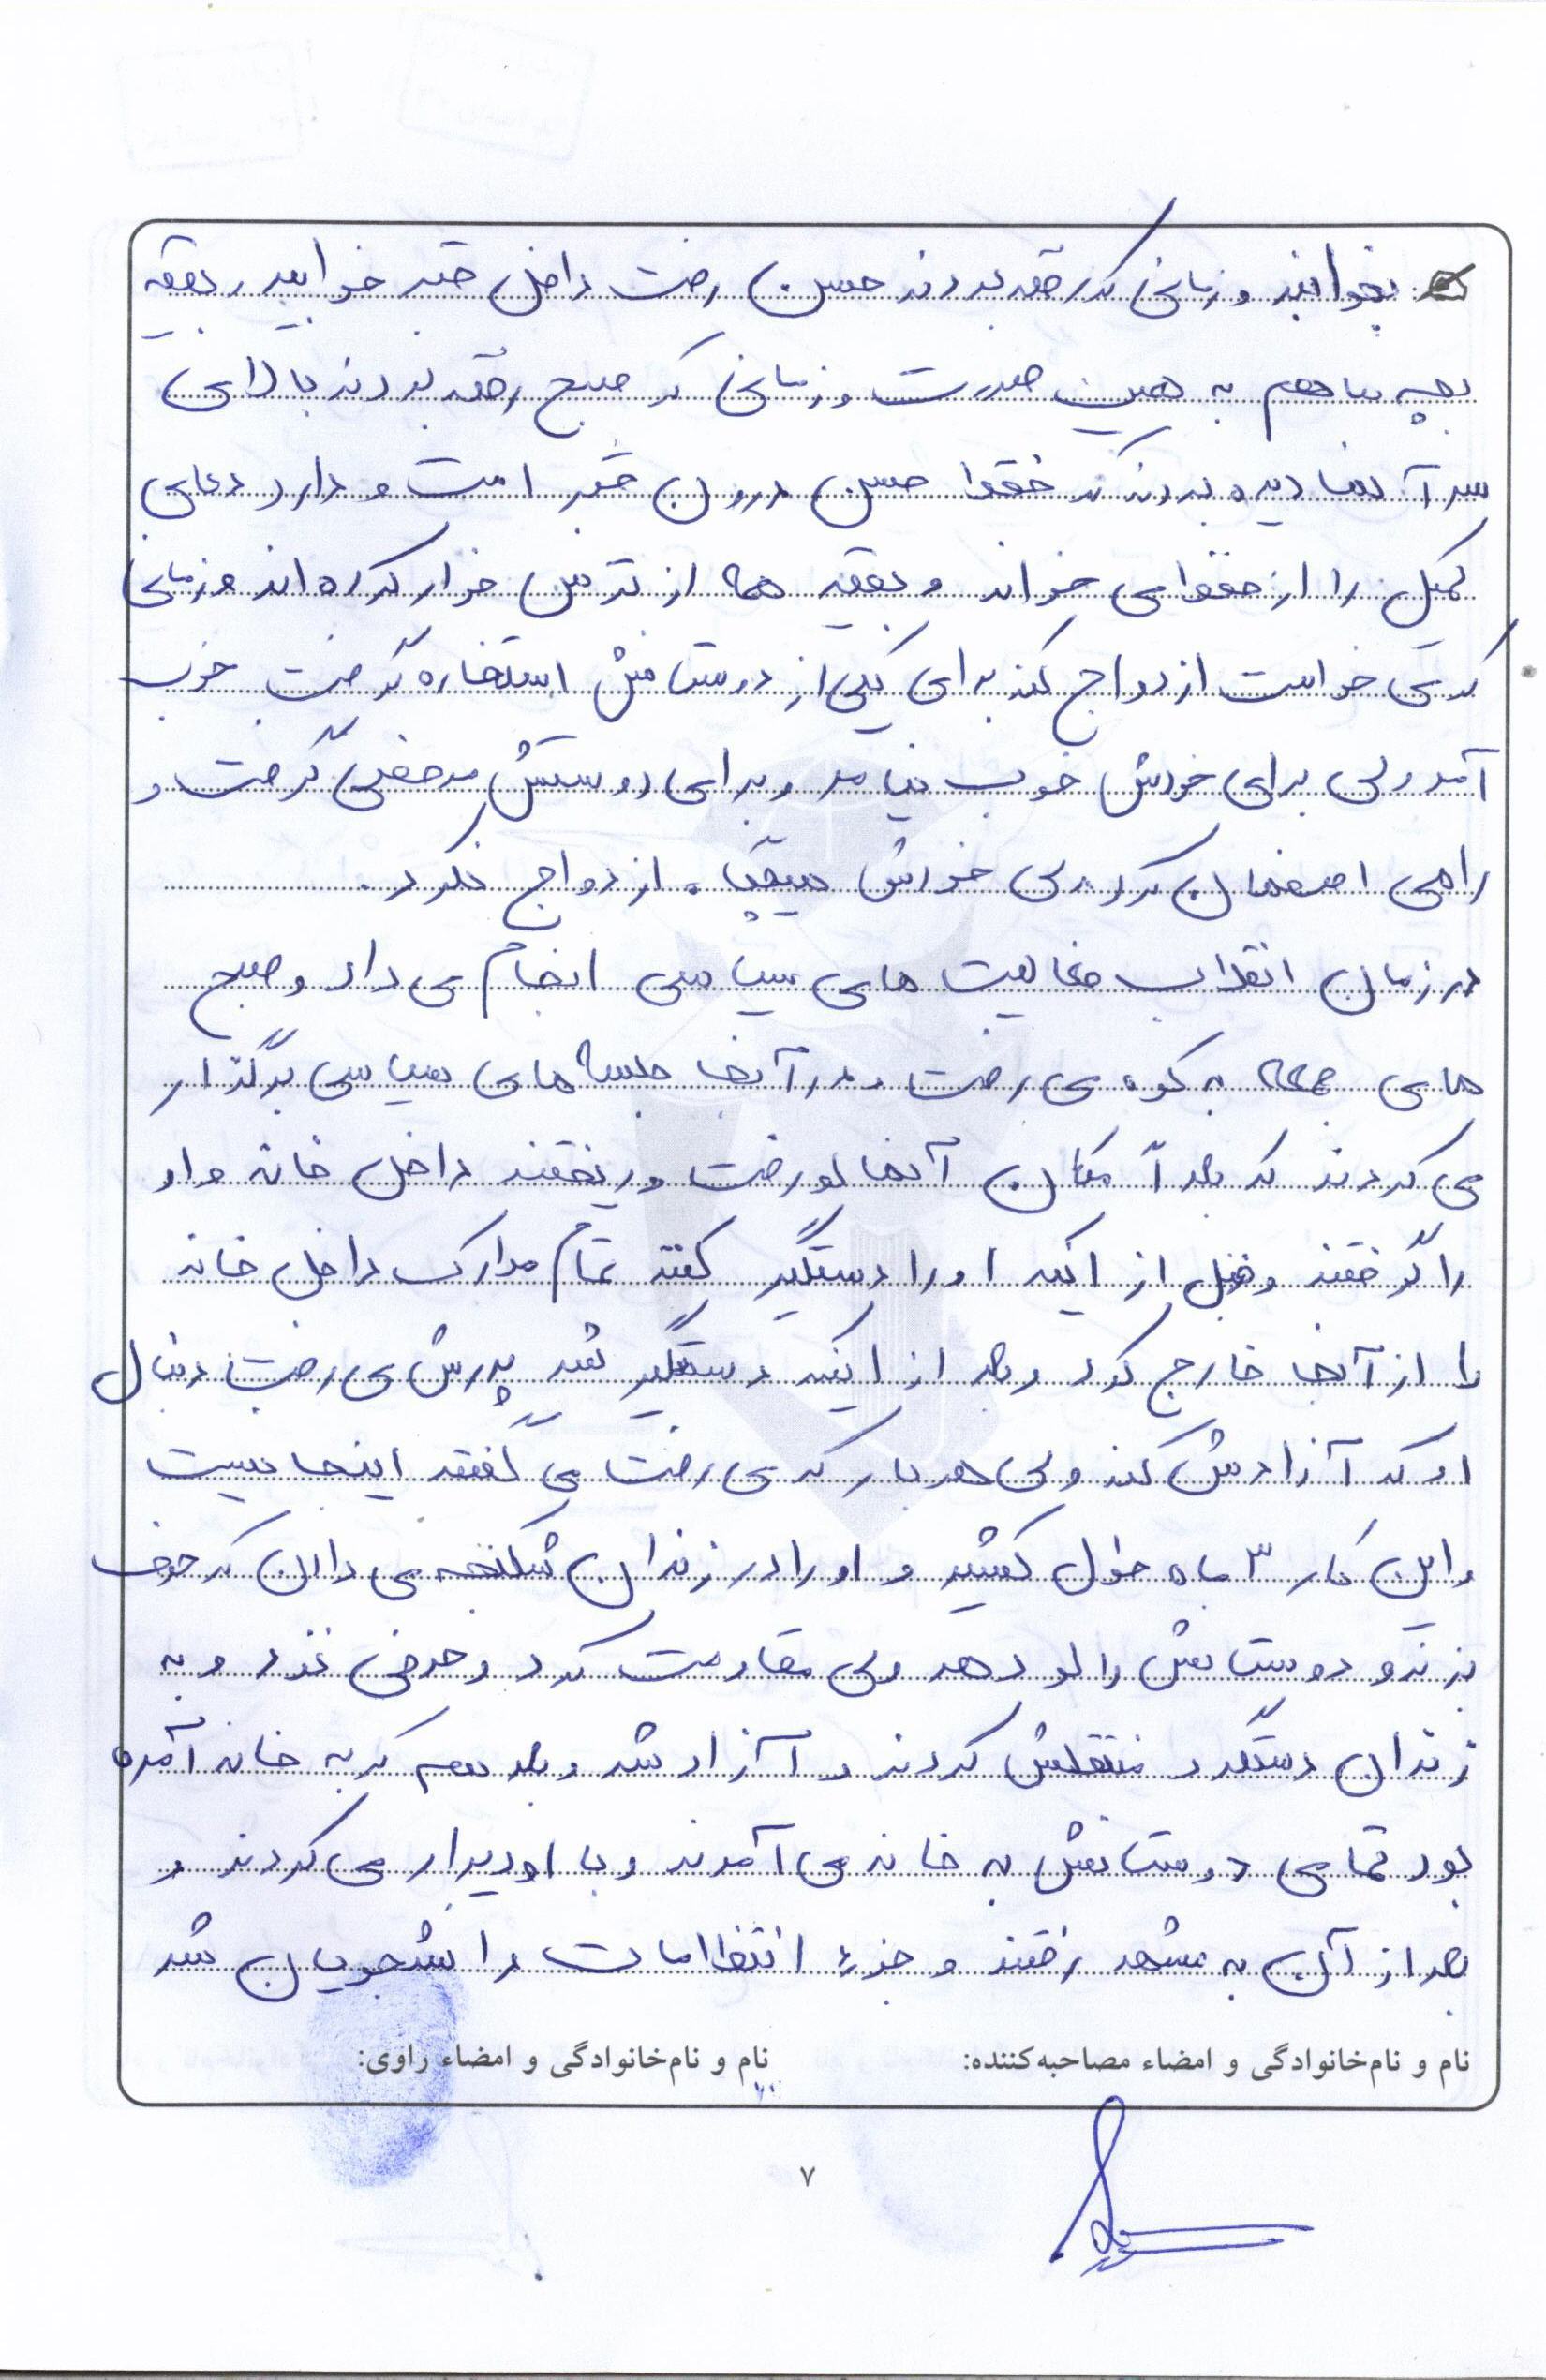 بخوابند و زمانی که رفته بودند حسن رفت داخل قبر خوابید و بقیه
بچه ها هم به همین صورت و زمانی که صبح رفته بودند بالای
سر آنها دیده بودند که فقط حسن درون قبر است و دارد دعای
کمیل را از حفظ می خواند و بقیه همه از ترس فرار کرده اند و زمانی
که می خواست ازدواج کند برای یکی از دوستانش استخاره گرفت خوب
آمد ولی برای خودش خوب نیامد و برای دوستش مرخصی گرفت و
راهی اصفهان کرد ولی خودش هیچگاه ازدواج نکرد.
در زمان انقلاب فعالیت های سیاسی انجام می داد و صبح
های جمعه به کوه می رفت و در آنجا جلسه های سیاسی برگذار
می کردند که بعداً مکان آنها لو رفت و ریختند داخل خانه و او
را گرفتند و قبل از اینکه او را دستگیر کنند تمام مدارک داخل خانه
را از آنجا خارج کرد و بعد از اینکه دستگیر شد پدرش می رفت دنبال
او که آزادش کند ولی هر بار که می رفت می گفتند اینجا نیست
و این کار ۳ ماه طول کشید و او را در زندان شکنجه می دادن که حرف
بزند و دوستانش را لو دهد ولی مقاومت کرد و حرفی نزد و به
زندان دستگرد منتقلش کردند و آزاد شد و بعد هم که به خانه آمده
بود تمامی دوستانش به خانه می آمدند و با او دیدار می کردند و
بعد از آن به مشهد رفتند و جزء انتظامات دانشجویان شد
نام و نام‌خانوادگی و امضاء مصاحبه‌کننده: نام و نام‌خانوادگی و امضاء راوی:
۷